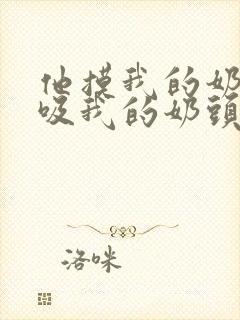 他摸我的奶
吸我的奶頭
洛咪